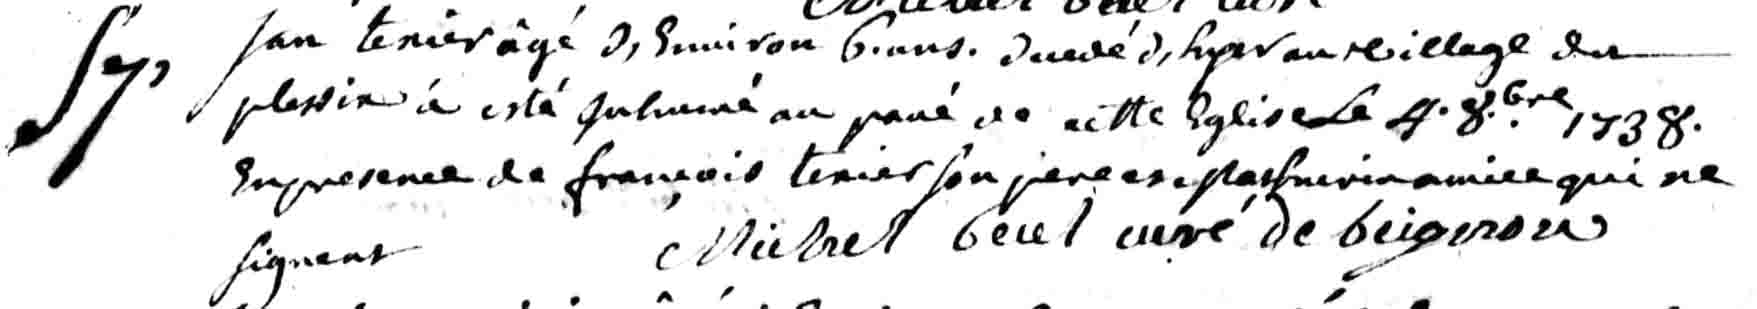 S7,
Jan texier âgé d, Environ 6. ans. d, hyer au village du
plessix à esté Inhumé au pavé de cette Eglise Le 4. 8.bre 1738.
En presence de francois texier son pere et qui ne
signent Michel curé de beignon